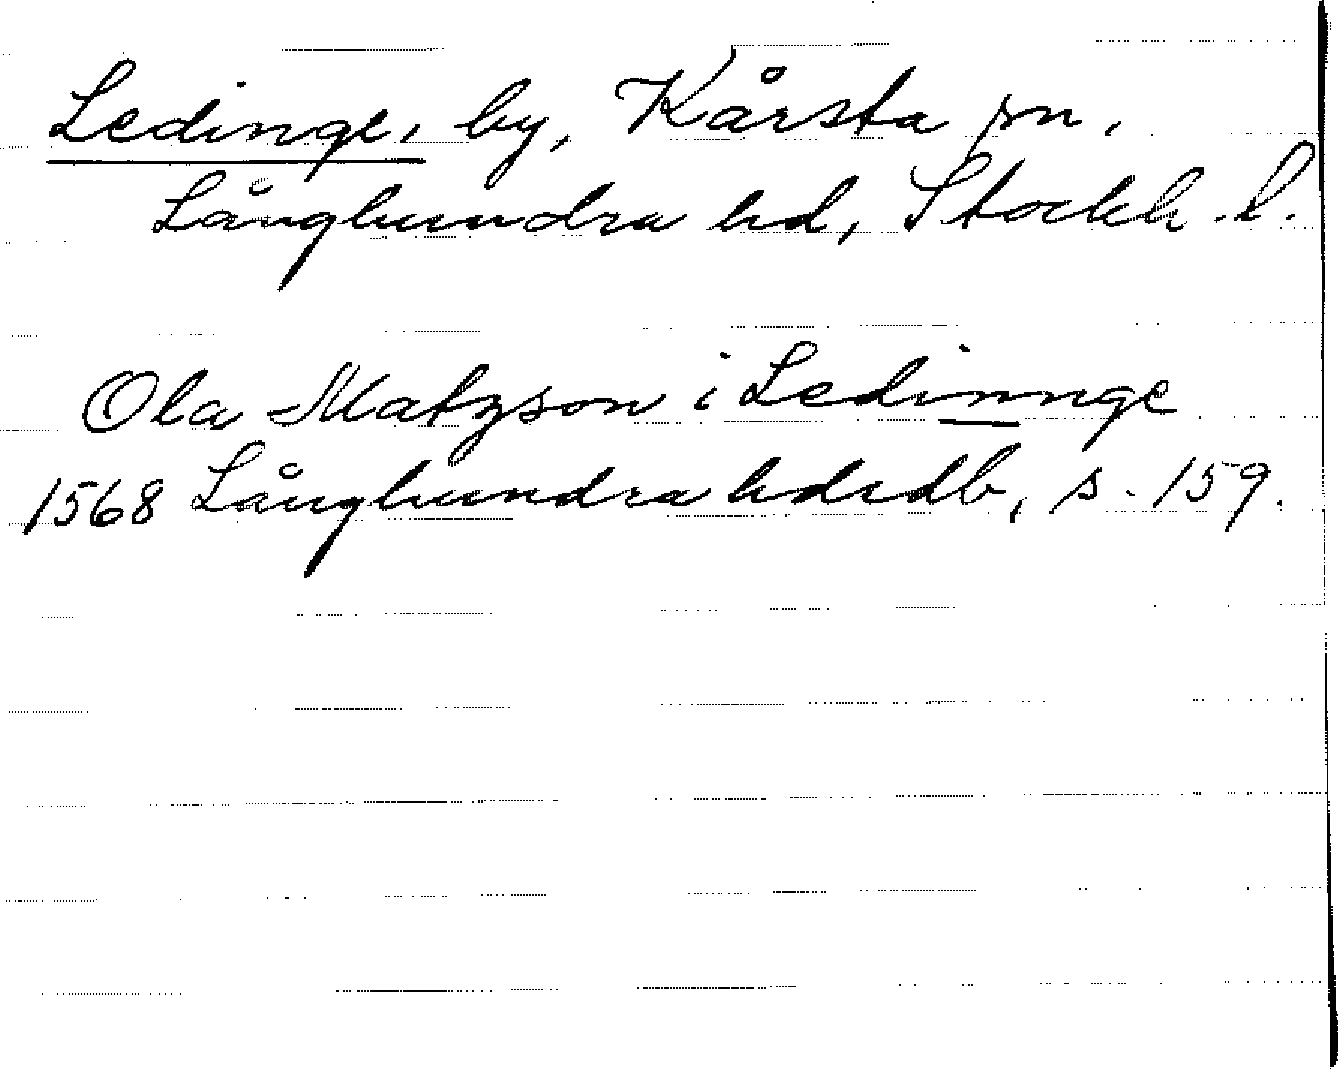 Ledinge, by, Kårsta sn,
Långhundra hd, Stockh. l.
Ola Matzson i Ledinnge
1568 Långhundra hdrdb, s. 159.